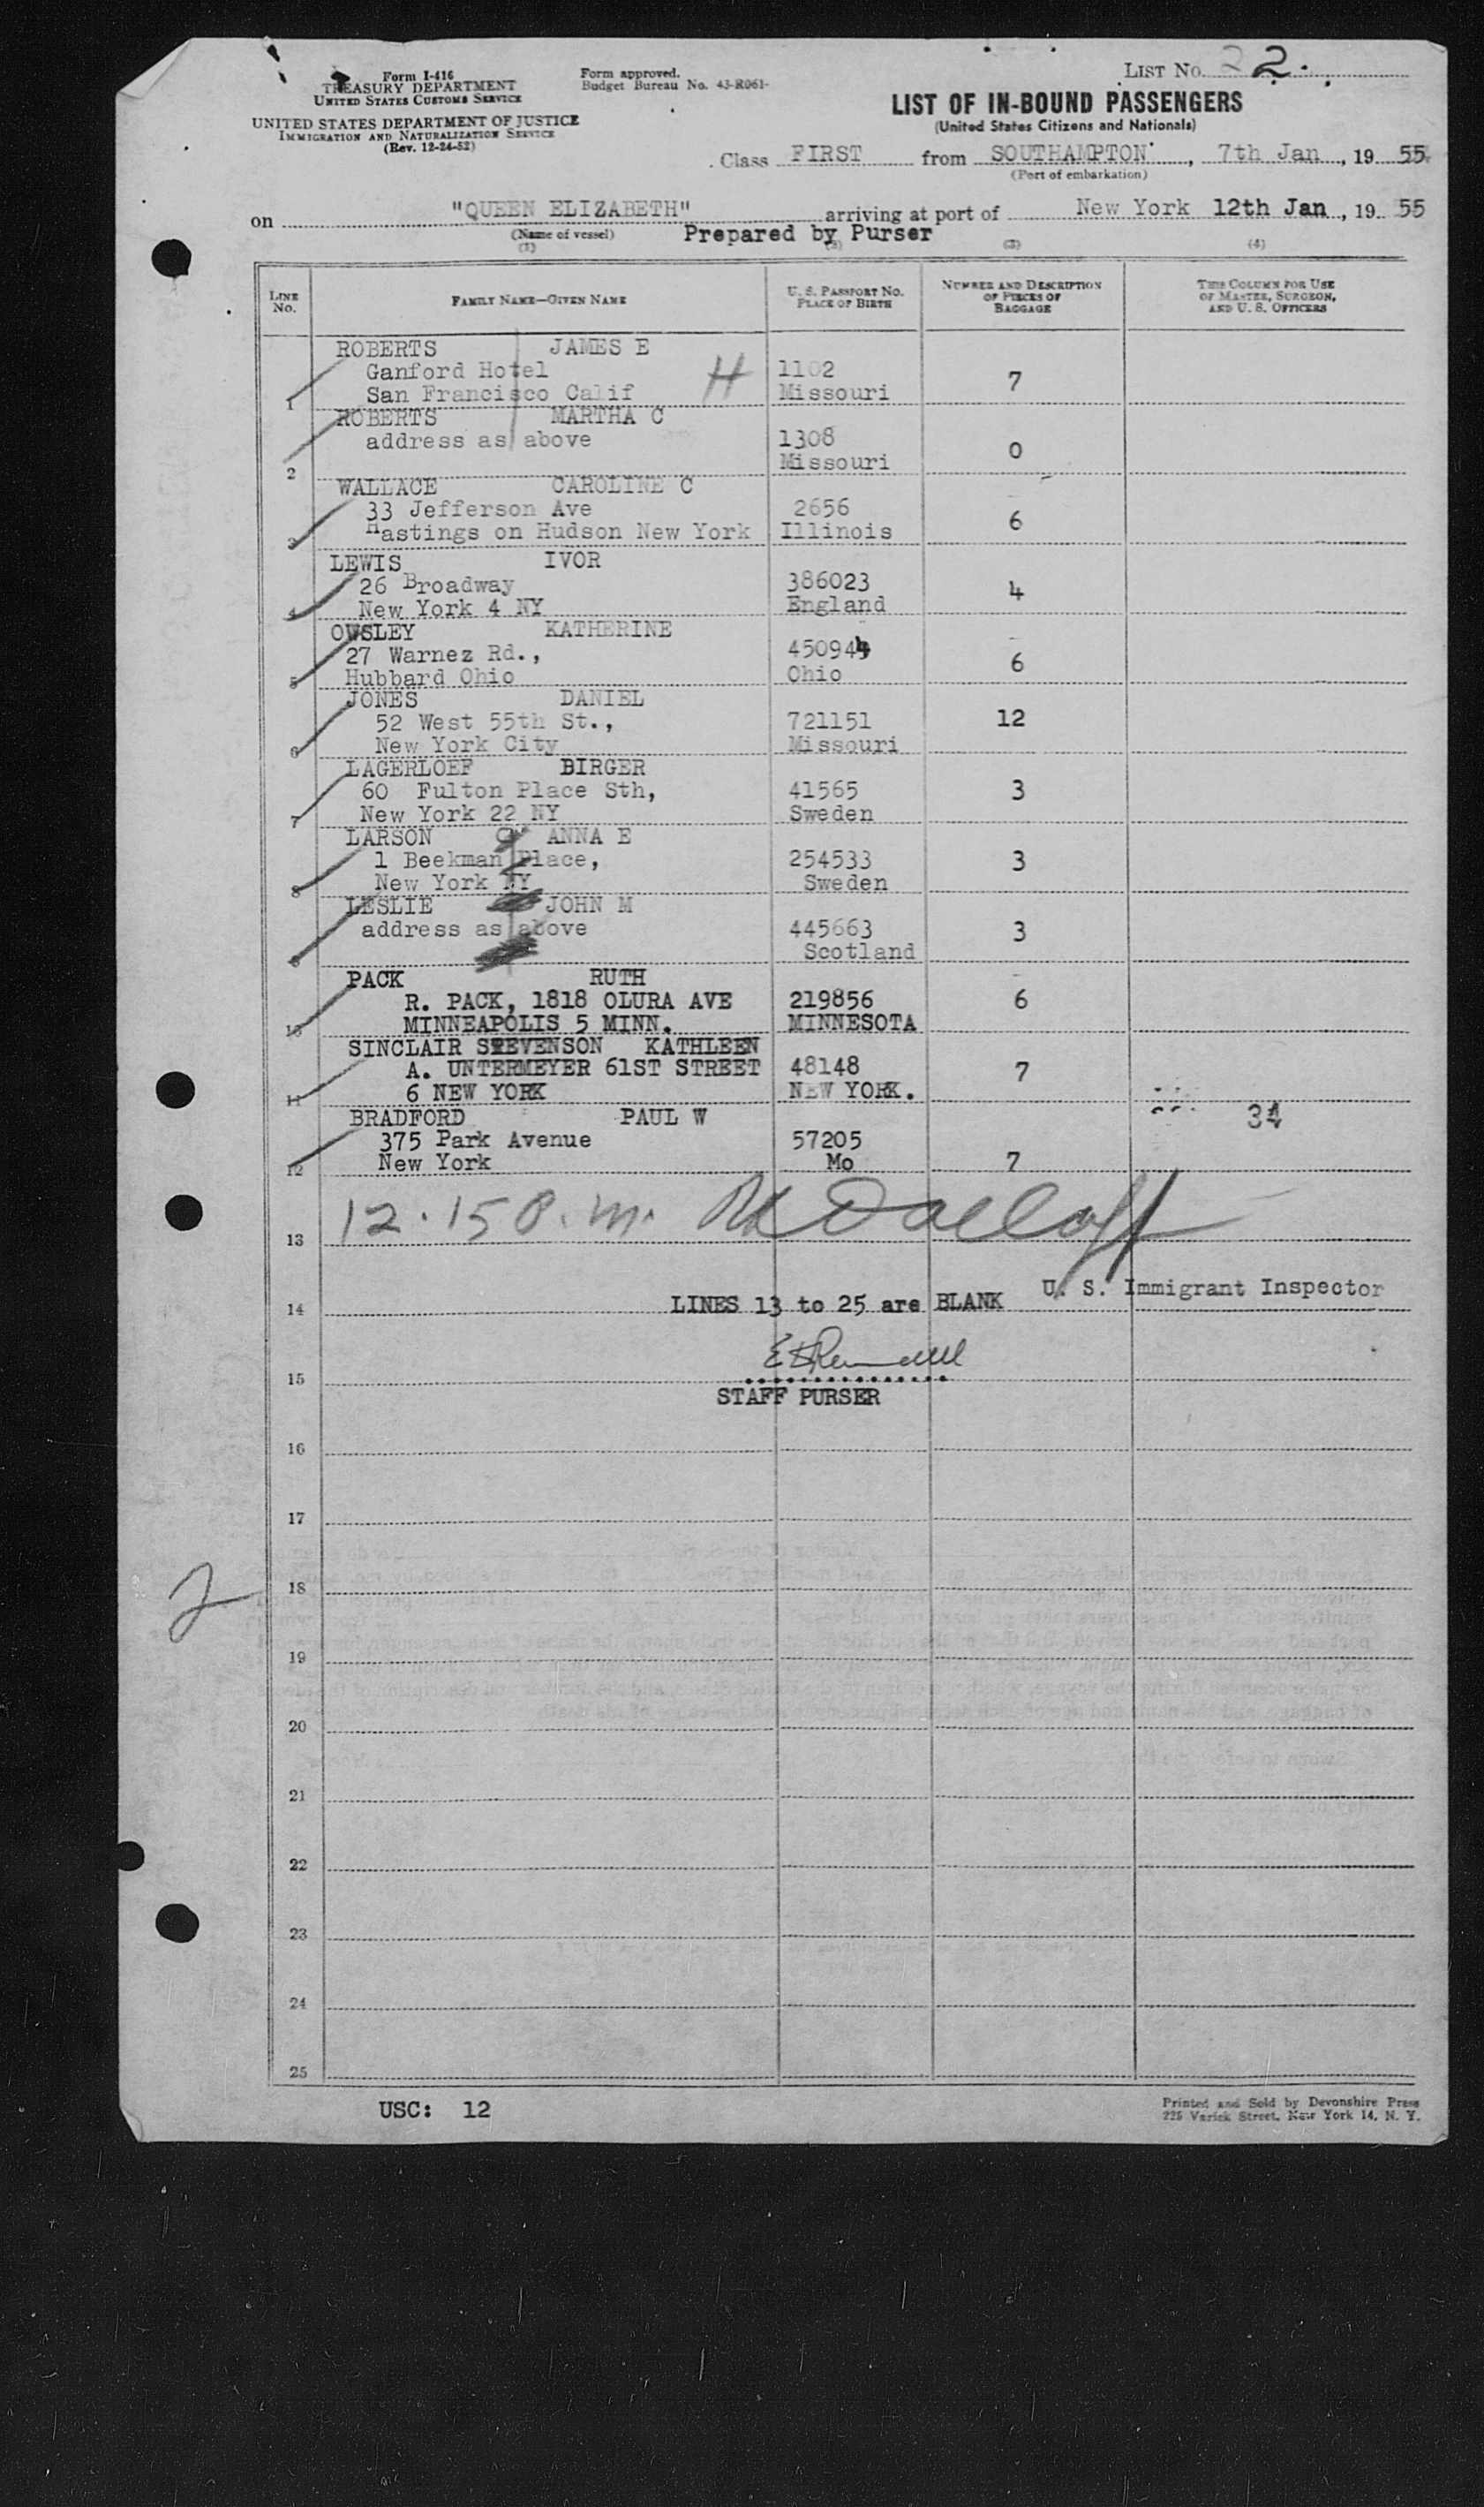 Form I-416
TREASURY DEPARTMENT
UNITED STATES CUSTOMS SERVICE
UNITED STATES DEPARTMENT OF JUSTICE
IMMIGRATION AND NATURALIZATION SERVICE
(Rev. 12-24-52)
Form approved.
Budget Bureau No. 43-R061-
LIST No. 2.
LIST OF IN-BOUND PASSENGERS
(United States Citizens and Nationals)
Class FIRST from SOUTHAMPTON, 7th Jan, 19 55
(Port of embarkation)
on "QUEEN ELIZABETH" arriving at port of New York 12th Jan, 19 55
(Name of vessel) Prepared by Purser
(1) (2) (3) (4)
LINE No. FAMILY NAME—GIVEN NAME U. S. PASSPORT No. PLACE OF BIRTH NUMBER AND DESCRIPTION OF PIECES OF BAGGAGE THIS COLUMN FOR USE OF MASTER, SURGEON, AND U. S. OFFICERS
ROBERTS JAMES E
Ganford Hotel H 1102 7
1 San Francisco Calif Missouri
ROBERTS MARTHA C
address as above 1308 0
2 Missouri
WALLACE CAROLINE C
33 Jefferson Ave 2656 6
3 Hastings on Hudson New York Illinois
LEWIS IVOR
26 Broadway 386023 4
4 New York 4 NY England
OWSLEY KATHERINE
27 Warnez Rd., 450944 6
5 Hubbard Ohio Ohio
JONES DANIEL
52 West 55th St., 721151 12
6 New York City Missouri
LAGERLOEF BIRGER
60 Fulton Place Sth, 41565 3
7 New York 22 NY Sweden
LARSON ANNA E
1 Beekman Place, 254533 3
8 New York NY Sweden
LESLIE JOHN M
address as above 445663 3
9 Scotland
PACK RUTH
R. PACK, 1818 OLURA AVE 219856 6
10 MINNEAPOLIS 5 MINN. MINNESOTA
SINCLAIR STEVENSON KATHLEEN
A. UNTERMEYER 61ST STREET 48148 7
11 6 NEW YORK NEW YORK.
BRADFORD PAUL W 34
375 Park Avenue 57205
12 New York Mo 7
13 12.15 P.m.
U. S. Immigrant Inspector
14 LINES 13 to 25 are BLANK
15
STAFF PURSER
16
17
2
18
19
20
21
22
23
24
25
USC: 12
Printed and Sold by Devonshire Press
225 Varick Street, New York 14, N. Y.